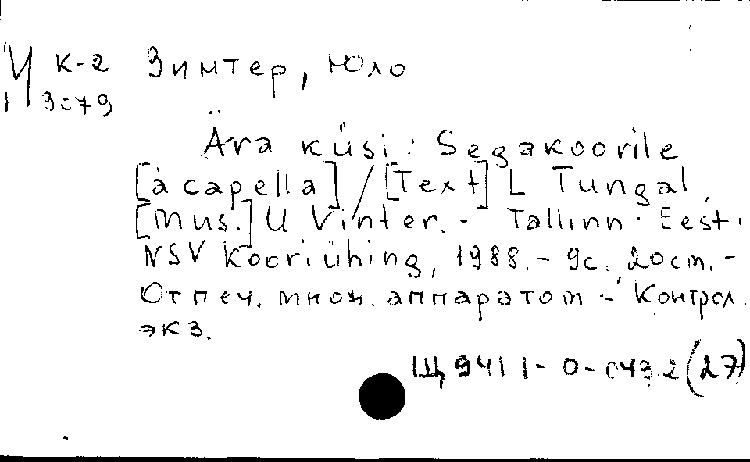 К-2 Зимтер, Юло
3079
Ära küsi: Segakoorile
[a capella] / [Text] L Tungal,
[Mus.] U Vinter. - Tallinn: Eesti
NSV Kooriühing, 1988. - 9с. 20cm. -
Отпеч. множ. аппаратом - Контрол.
экз.
(27)